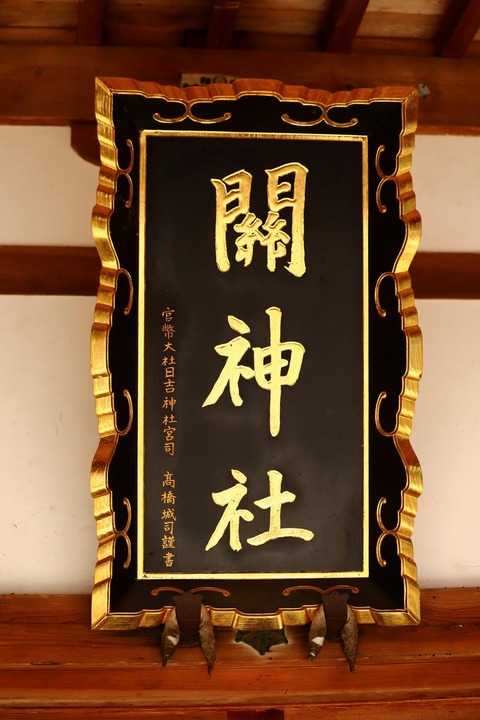 關神社
官幣大社日吉神社宮司 高橋城司謹書